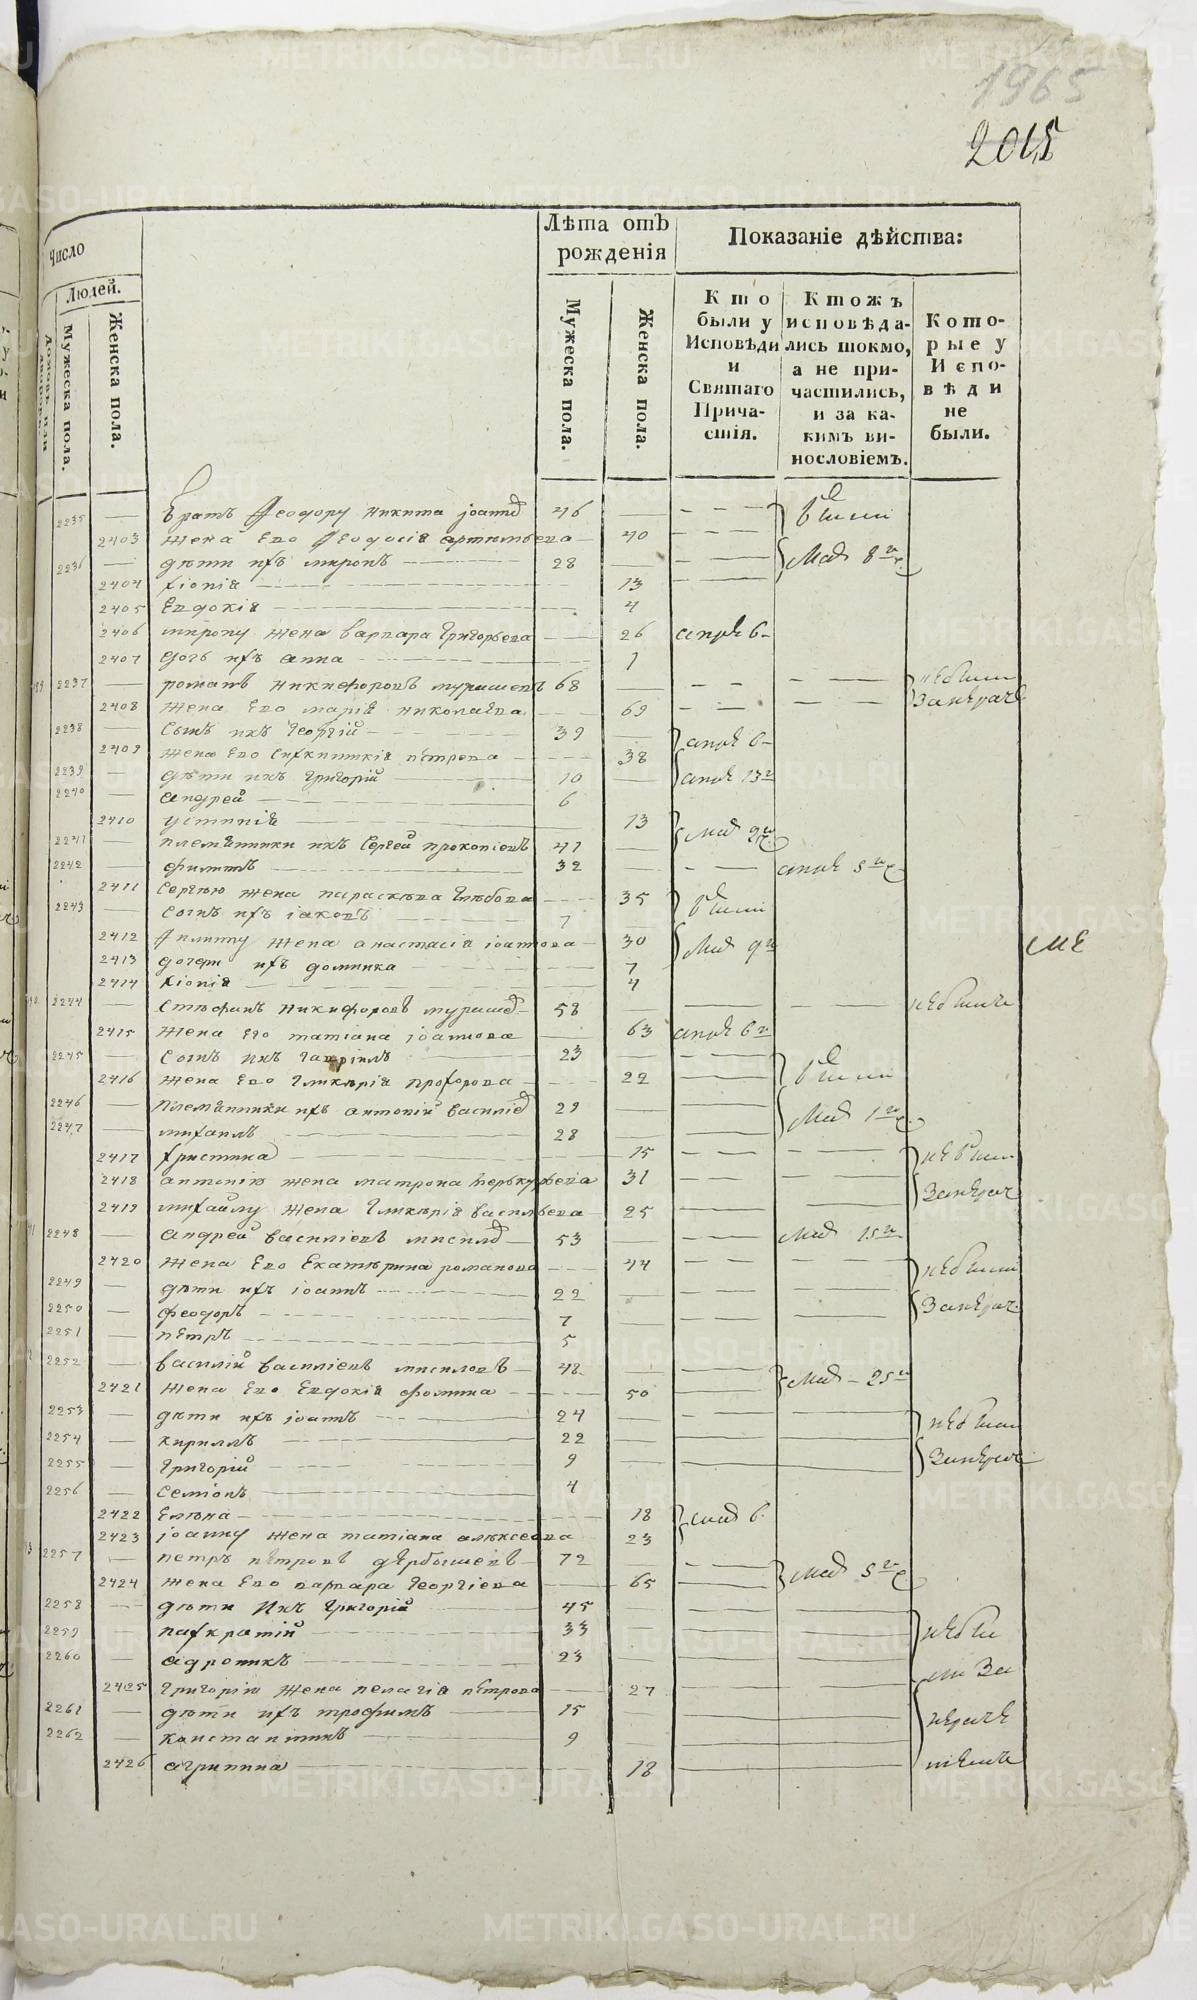 1965
2015
Число
Людей.
Мужеска пола.
Женска пола.
Лѣта отъ рожденія
Мужеска пола.
Женска пола.
Показаніе дѣйства:
Кто были у Исповѣди и Святаго Причастія.
Ктожъ исповѣдались токмо, а не причастились, и за какимъ винословіемъ.
Которые у Исповѣди не были.
2235 — братъ Феодору никита 46
2403 жена Его Феодосія артемьева 40 Маія 8
2236 — дѣти ихъ миронъ 28
2404 хіонія 13
2405 Евдокія 4
2406 мирону жена варвара григорьева 26 апрѣ 6
2407 дочь ихъ анна 1
2237 — романъ никифоровъ 68 небыли
2408 жена Его марія николаева 69
2238 — Сынъ ихъ георгій 39 апрѣ 6
2409 жена Его петрова 38
2239 — дѣти ихъ григорій 10 апрѣ 13
2240 — андрей 6
2410 устинія 13
2241 — племянники ихъ Сергей прокопіевъ 41 Маія 2
2242 — филиппъ 32 апрѣ 5
2411 Сергѣю жена параскѣва глѣбова 35
2243 — Сынъ ихъ іаковъ 7
2412 Филиппу жена анастасія іоаннова 30 Маія 9
2413 дочери ихъ домника 7
2414 хіонія 4
2244 — Стефанъ никифоровъ 58 небыли
2415 жена Его татіана іоаннова 63 апрѣ 6
2245 — Сынъ ихъ гавріилъ 23
2416 жена Его гликерія прохорова 22
2246 — племянники ихъ антоній 29 Маія 1
2247 — михаилъ 28
2417 христина 15
2418 антонію жена матрона 31
2419 михаилу жена гликерія васильева 25
2248 — андрей василіевъ 53 Маія 15
2420 жена Его Екатерина романова 44 небыли
2249 — дѣти ихъ іоаннъ 22
2250 — феодоръ 7
2251 — петръ 5
2252 — василій василіевъ 48 Маія — 25
2421 жена Его Евдокія фомина 50
2253 — дѣти ихъ іоаннъ 24
2254 — кириллъ 22
2255 — григорій 9
2256 — семіонъ 4
2422 Елена 18 маія 6
2423 іоанну жена татіана алексеева 23
2257 — петръ петровъ дербышевъ 72
2424 жена Его варвара георгіева 65 Маія 5
2258 — дѣти ихъ григорій 45
2259 — панкратій 33
2260 — адроникъ 23
2425 григорію жена пелагія петрова 27
2261 — дѣти ихъ трофимъ 15
2262 — константинъ 9
2426 агрипина 18
METRIKI.GASO-URAL.RU